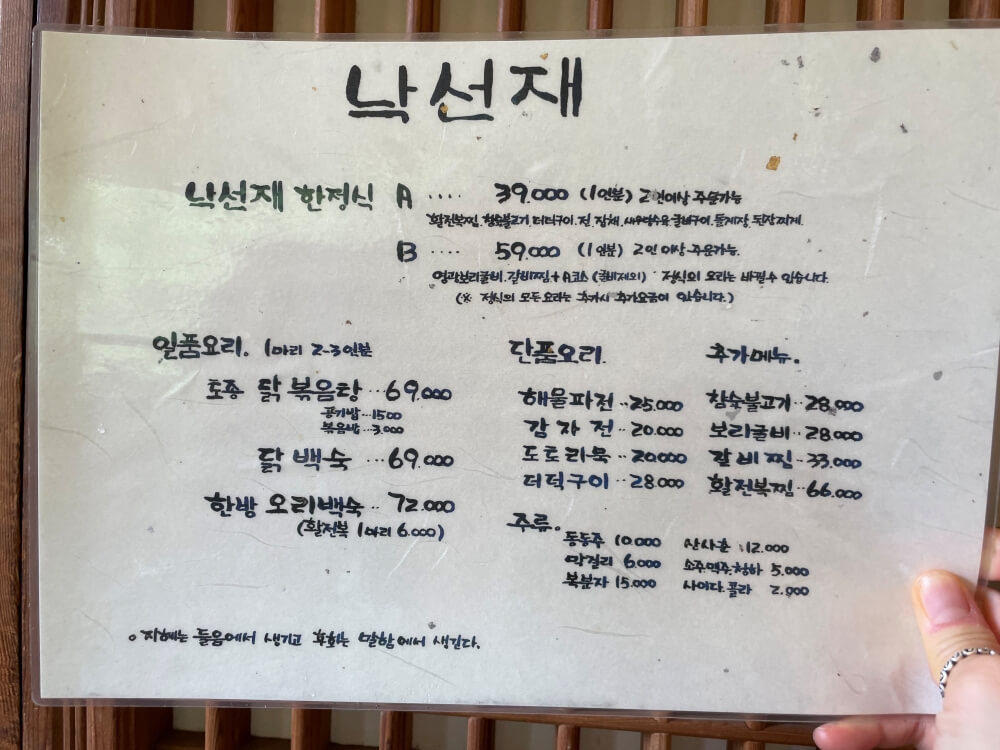 낙선재
낙선재 한정식 A .... 39.000 (1인분) 2인이상 주문가능
활전복찜, 함순불고기, 더덕구이, 전, 잡채, 새우탕수육, 굴비구이, 돌게장, 된장찌개.
B .... 59.000 (1인분) 2인 이상 주문가능.
영광보리굴비, 갈비찜 + A코스 (굴비제외) 정식의 요리는 바뀔수 있습니다.
(※ 정식의 모든 요리는 추가시 추가요금이 있습니다.)
일품요리. 1마리 2-3인분
토종 닭 볶음탕 ..69.000
공기밥 ...1500
볶음밥 ...3.000
닭 백숙 ...69.000
한방 오리백숙 ..72.000
(활전복 1마리 6.000)
단품요리.
해물파전 ..25.000
감 자 전 ..20.000
도토리묵 ..20.000
더덕구이 ..28.000
추가메뉴.
함순불고기 ..28.000
보리굴비 ..28.000
갈 비 찜 ..33.000
활전복찜 ..66.000
주류.
동동주 10.000
막걸리 6.000
복분자 15.000
산사춘 :12.000
소주.맥주.청하 5.000
사이다.콜라 2.000
o 지혜는 들음에서 생기고 후회는 말함에서 생긴다.